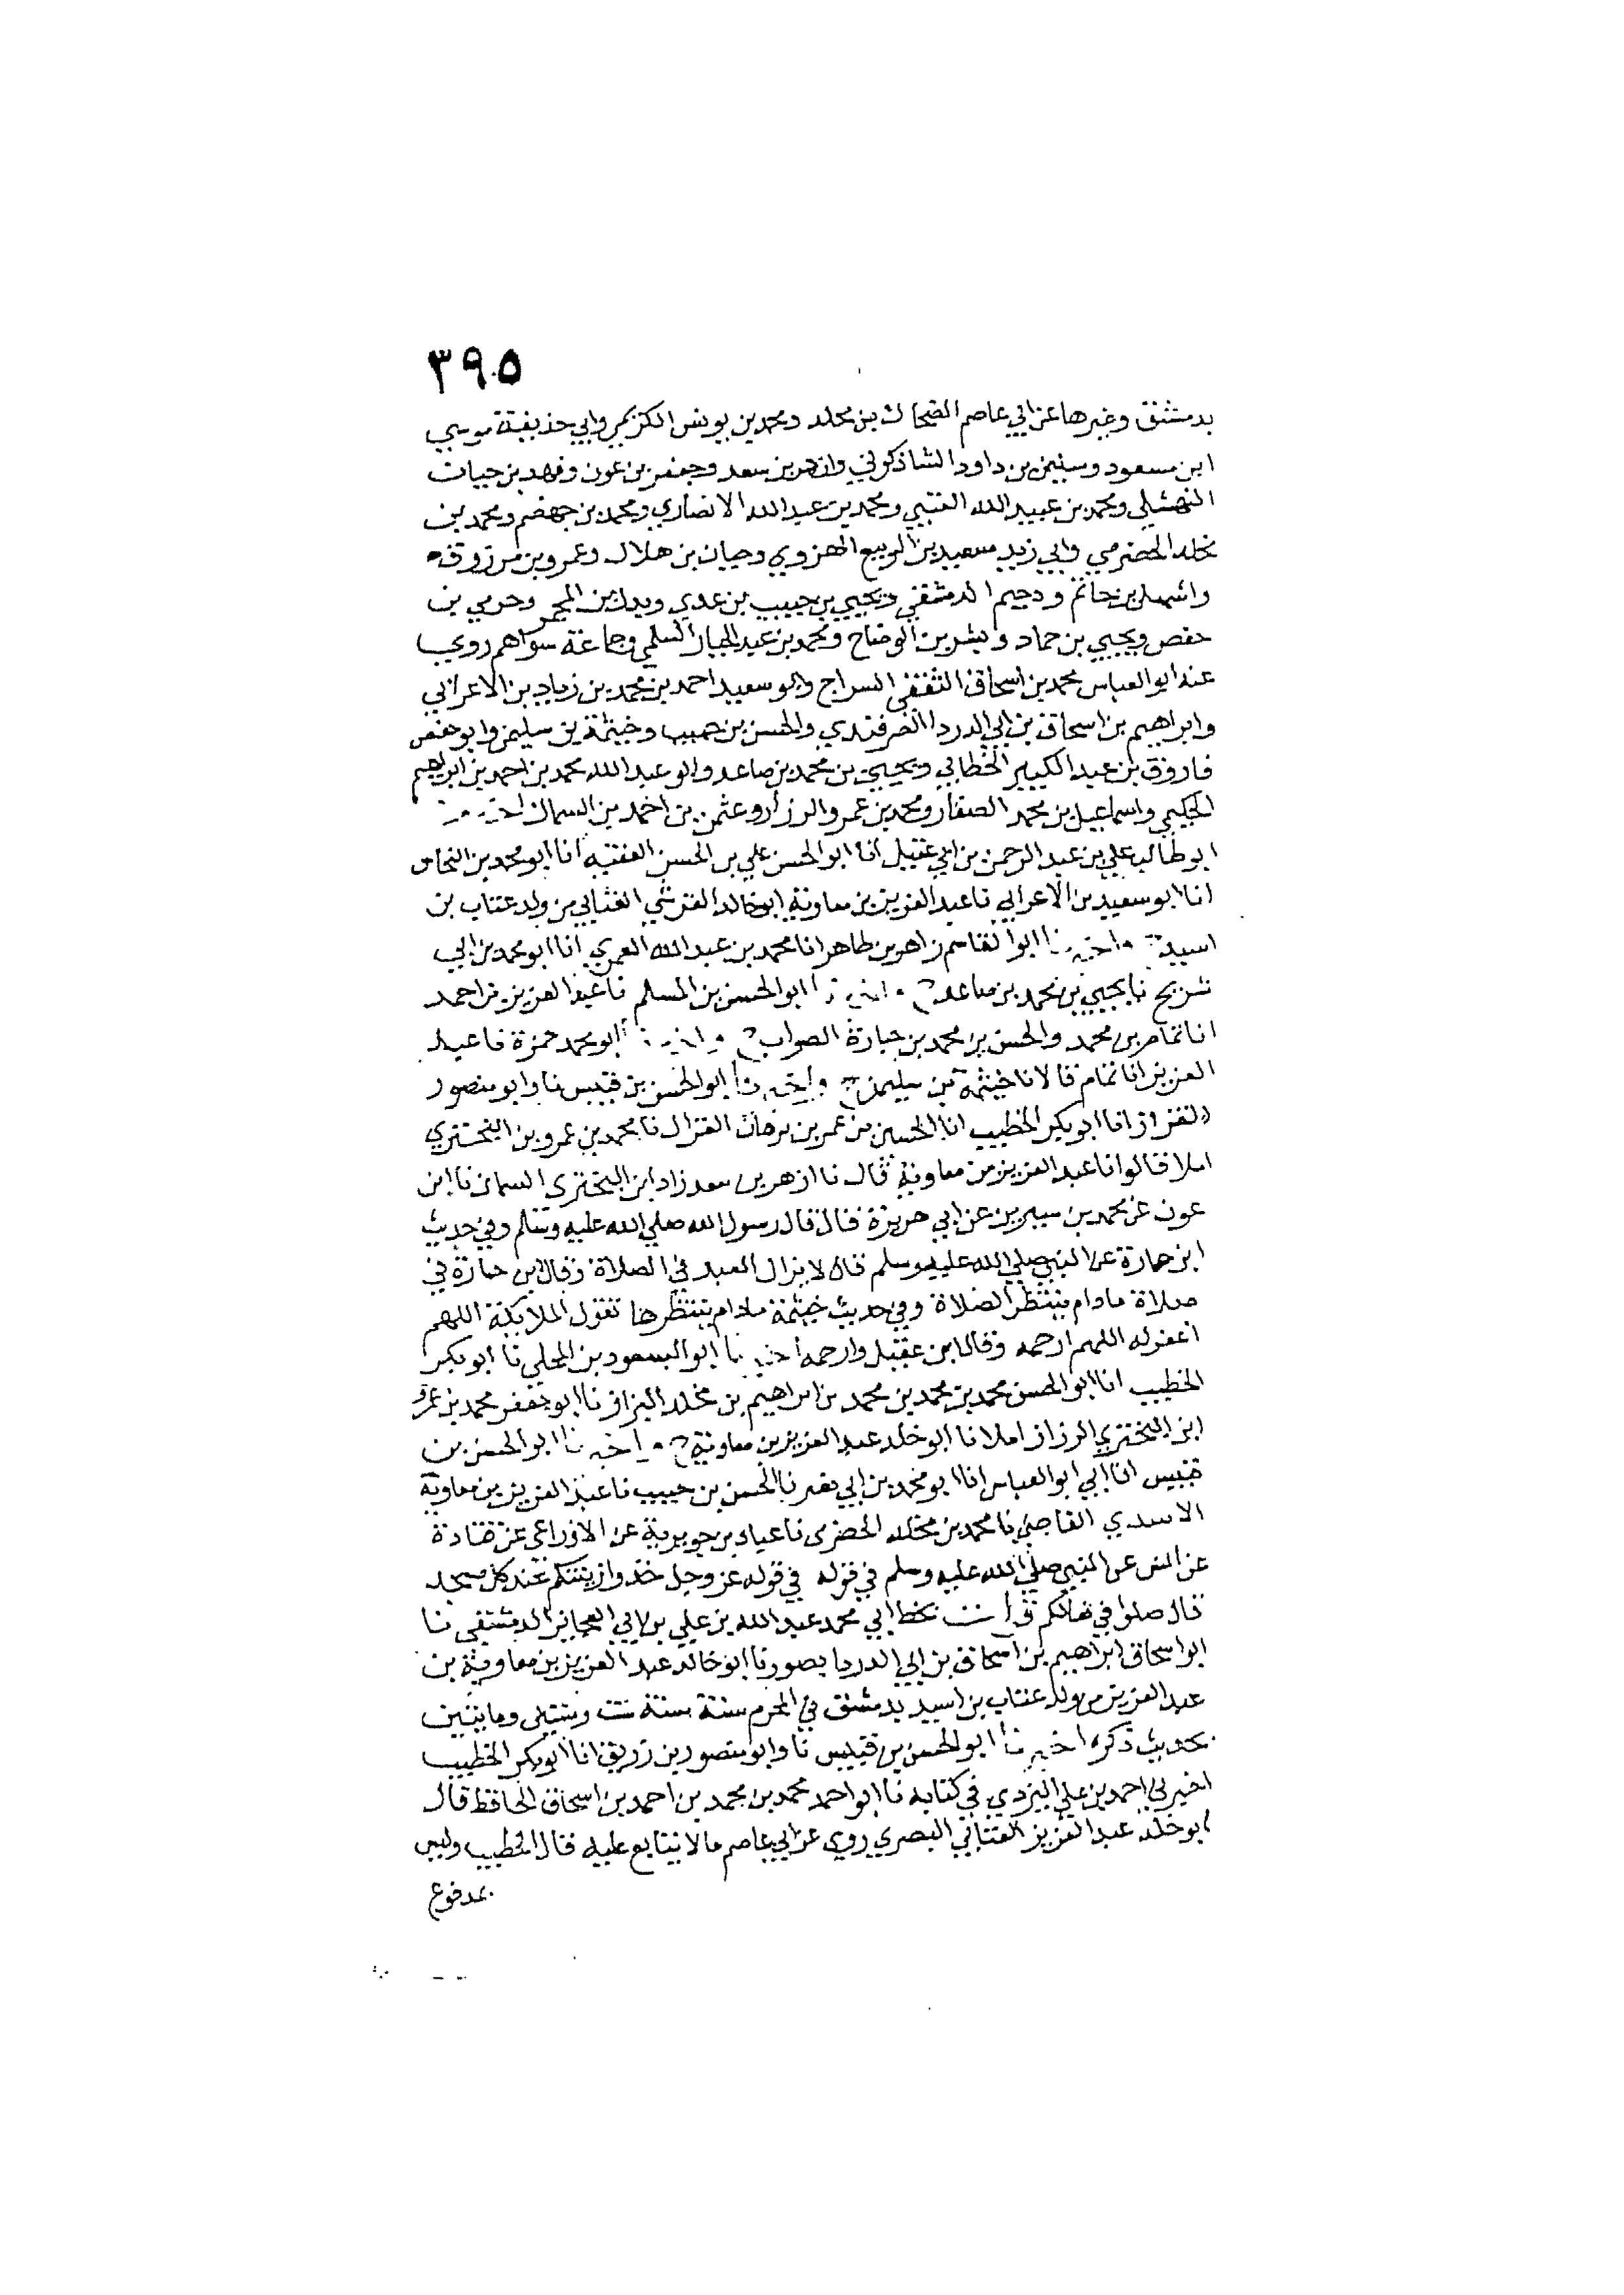 ٣٩٥
بدمشق وغيرها عن ابي عاصم الضحاك بن مخلد ومحمد بن يونس الكزيمي وابي حذيفة موسي
ابن مسعود وسليمن بن داود الشاذكوني وازهر بن سعد وجعفر بن عون وفهد بن حيات
النهشلي ومحمد بن عبيد الله العتبي ومحمد بن عبد الله الانصاري ومحمد بن جهضم ومحمد بن
مخلد الحضرمي وابي زيد سعيد بن الربيع الهزوي وحيان بن هلال وعمرو بن مرزوق
واشهل بن حاتم ودحيم الدمشقي ويحيي بن حبيب بن عدي وبدل بن المحبر وحرمي بن
حفص ويحيي بن حماد وبشر بن الوضاح ومحمد بن عبد الجبار السلمي وجماعة سواهم روي
عنه ابو العباس محمد بن اسحاق الثقفي السراج وابو سعيد احمد بن محمد بن زياد بن الاعرابي
وابراهيم بن اسحاق بن ابي الدردا الصرفندي والحسن بن حبيب وخيثمة بن سليمن وابو حفص
فاروق بن عبد الكبير الخطابي ويحيي بن محمد بن صاعد وابو عبد الله محمد بن احمد بن ابراهيم
الحكيمي واسماعيل بن محمد الصفار ومحمد بن عمرو الرزار وعثمن بن احمد بن السماك اخبرنا
ابو طالب علي بن عبد الرحمن بن ابي عقيل انا ابو الحسن علي بن الحسن الفقيه انا ابو محمد بن النحاس
انا ابو سعيد بن الاعرابي نا عبد العزيز بن معاوية ابو خالد القرشي العتابي من ولد عتاب بن
اسيد ح واخبرنا ابو القاسم زاهر بن طاهر انا محمد بن عبد الله العمري انا ابو محمد بن ابي
شريح نا يحيي بن محمد بن صاعد ح واخبرنا ابو الحسن بن المسلم نا عبد العزيز بن احمد
انا تمام بن محمد والحسن بن محمد بن جبارة الصواب ح واخبرنا ابو محمد حمزة نا عبد
العزيز انا تمام قالا نا خيثمة بن سليمن ح واخبرنا ابو الحسن بن قبيس نا وابو منصور
القزاز انا ابو بكر الخطيب انا الحسين بن عمر بن برهان الغزال نا محمد بن عمرو بن البختري
املا قالوا نا عبد العزيز بن معاوية قال نا ازهر بن سعد زاد ابن البختري السمان نا ابن
عون عن محمد بن سيرين عن ابي هريرة قال قال رسول الله صلي الله عليه وسلم وفي حديث
ابن جبارة عن النبي صلي الله عليه وسلم قال لا يزال العبد في الصلاة وقال ابن جبارة في
صلاة مادام ينتظر الصلاة وفي حديث خيثمة مادام ينتظرها تقول الملايكة اللهم
اغفر له اللهم ارحمه وقال ابن عقيل وارحمه اخبرنا ابو السعود بن المجلي نا ابو بكر
الخطيب انا ابو الحسن محمد بن محمد بن محمد بن ابراهيم بن مخلد البزاز نا ابو جعفر محمد بن عمرو
ابن البختري الرزاز املا نا ابو خلد عبد العزيز بن معاوية ح واخبرنا ابو الحسن بن
قبيس انا ابي ابو العباس انا ابو محمد بن ابي نصر نا الحسن بن حبيب نا عبد العزيز بن معاوية
الاسدي القاضي نا محمد بن مخلد الحضرمي نا عباد بن جويرية عن الاوزاعي عن قتادة
عن انس عن النبي صلي الله عليه وسلم في قوله في قوله عز وجل خذوا زينتكم عند كل مسجد
قال صلوا في نعالكم قرأت بخط ابي محمد عبد الله بن علي بن ابي العجايز الدمشقي نا
ابو اسحاق ابراهيم بن اسحاق بن ابي الدردا بصور نا ابو خالد عبد العزيز بن معاوية بن
عبد العزيز من ولد عتاب بن اسيد بدمشق في المحرم سنة سنة ست وستين ومايتين
بحديث ذكره اخبرنا ابو الحسن بن قبيس نا وابو منصور بن زريق انا ابو بكر الخطيب
اخبرني احمد بن علي اليزدي في كتابه نا ابو احمد محمد بن محمد بن احمد بن اسحاق الحافظ قال
ابو خلد عبد العزيز العتابي البصري روي عن ابي عاصم مالا يتابع عليه قال الخطيب وليس
بمدفوع